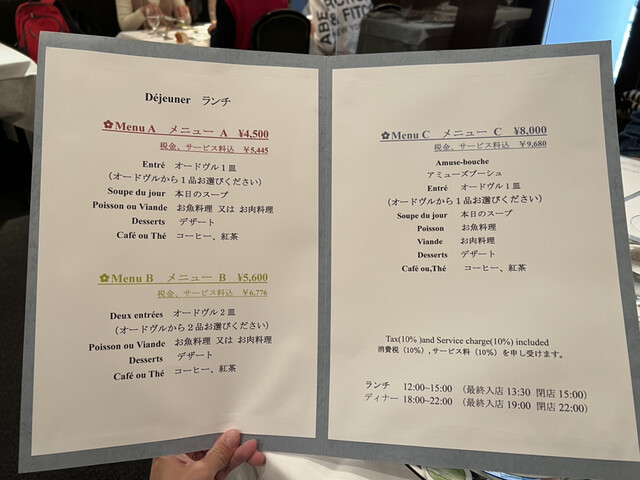 ABE
& FITC
NEW YO
Déjeuner ランチ
✿Menu A メニュー A ¥4,500
税金、サービス料込 ¥5,445
Entré オードヴル1皿
(オードヴルから1品お選びください)
Soupe du jour 本日のスープ
Poisson ou Viande お魚料理 又は お肉料理
Desserts デザート
Café ou Thé コーヒー、紅茶
✿Menu B メニュー B ¥5,600
税金、サービス料込 ¥6,776
Deux entrées オードヴル2皿
(オードヴルから2品お選びください)
Poisson ou Viande お魚料理 又は お肉料理
Desserts デザート
Café ou Thé コーヒー、紅茶
✿Menu C メニュー C ¥8,000
税金、サービス料込 ¥9,680
Amuse-bouche
アミューズブーシュ
Entré オードヴル1皿
(オードヴルから1品お選びください)
Soupe du jour 本日のスープ
Poisson お魚料理
Viande お肉料理
Desserts デザート
Café ou,Thé コーヒー、紅茶
Tax(10% )and Service charge(10%) included
消費税（10%）,サービス料（10%）を申し受けます。
ランチ 12:00~15:00 （最終入店 13:30 閉店 15:00）
ディナー 18:00~22:00 （最終入店 19:00 閉店 22:00）